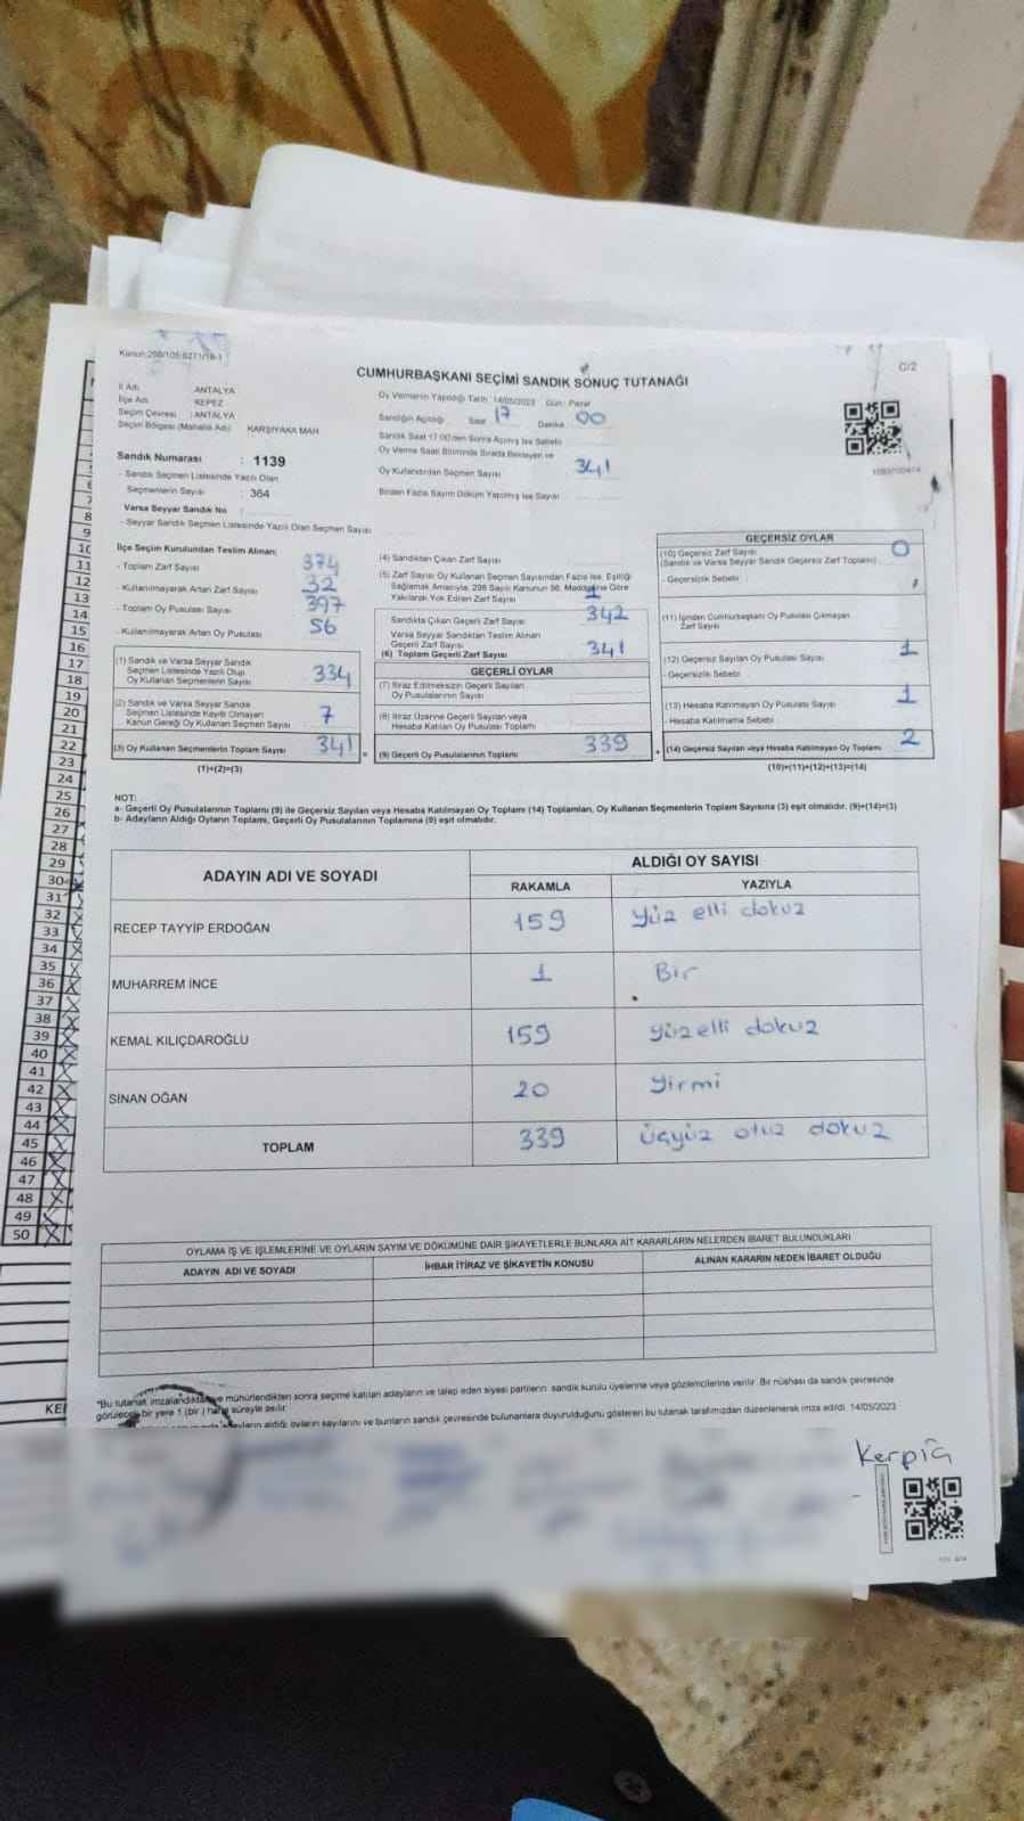 Kanun:298/105
CUMHURBAŞKANI SEÇİMİ SANDIK SONUÇ TUTANAĞI
C/2
İl Adı : ANTALYA
İlçe Adı : KEPEZ
Seçim Çevresi : ANTALYA
Seçim Bölgesi (Mahalle Adı) : KARŞIYAKA MAH
Sandık Numarası : 1139
- Sandık Seçmen Listesinde Yazılı Olan
Seçmenlerin Sayısı : 364
Varsa Seyyar Sandık No :
- Seyyar Sandık Seçmen Listesinde Yazılı Olan Seçmen Sayısı
Oy Vermenin Yapıldığı Tarih : 14/05/2023 Gün : Pazar
Sandığın Açıldığı Saat 17 Dakika 00
Sandık Saat 17:00'den Sonra Açılmış İse Sebebi
Oy Verme Saati Bitiminde Sırada Bekleyen ve
Oy Kullandırılan Seçmen Sayısı 341
Birden Fazla Sayım Döküm Yapılmış İse Sayısı
İlçe Seçim Kurulundan Teslim Alınan:
- Toplam Zarf Sayısı 374
- Kullanılmayarak Artan Zarf Sayısı 32
- Toplam Oy Pusulası Sayısı 397
- Kullanılmayarak Artan Oy Pusulası 56
(1) Sandık ve Varsa Seyyar Sandık
Seçmen Listesinde Yazılı Olup
Oy Kullanan Seçmenlerin Sayısı 334
(2) Sandık ve Varsa Seyyar Sandık
Seçmen Listesinde Kayıtlı Olmayan
Kanun Gereği Oy Kullanan Seçmen Sayısı 7
(3) Oy Kullanan Seçmenlerin Toplam Sayısı 341
(1)+(2)=(3)
(4) Sandıktan Çıkan Zarf Sayısı
(5) Zarf Sayısı Oy Kullanan Seçmen Sayısından Fazla İse, Eşitliği
Sağlamak Amacıyla, 298 Sayılı Kanunun 98. Maddesine Göre
Yakılarak Yok Edilen Zarf Sayısı 1
Sandıkta Çıkan Geçerli Zarf Sayısı 342
Varsa Seyyar Sandıktan Teslim Alınan
Geçerli Zarf Sayısı
(6) Toplam Geçerli Zarf Sayısı 341
GEÇERLİ OYLAR
(7) İtiraz Edilmeksizin Geçerli Sayılan
Oy Pusulalarının Sayısı
(8) İtiraz Üzerine Geçerli Sayılan veya
Hesaba Katılan Oy Pusulası Toplamı
(9) Geçerli Oy Pusulalarının Toplamı 339
GEÇERSİZ OYLAR
(10) Geçersiz Zarf Sayısı 0
(Sandık ve Varsa Seyyar Sandık Geçersiz Zarf Toplamı)
- Geçersizlik Sebebi
(11) İçinden Cumhurbaşkanı Oy Pusulası Çıkmayan
Zarf Sayısı
(12) Geçersiz Sayılan Oy Pusulası Sayısı 1
- Geçersizlik Sebebi
(13) Hesaba Katılmayan Oy Pusulası Sayısı 1
- Hesaba Katılmama Sebebi
(14) Geçersiz Sayılan veya Hesaba Katılmayan Oy Toplamı 2
(10)+(11)+(12)+(13)=(14)
NOT:
a- Geçerli Oy Pusulalarının Toplamı (9) ile Geçersiz Sayılan veya Hesaba Katılmayan Oy Toplamı (14) Toplamları, Oy Kullanan Seçmenlerin Toplam Sayısına (3) eşit olmalıdır. (9)+(14)=(3)
b- Adayların Aldığı Oyların Toplamı, Geçerli Oy Pusulalarının Toplamına (9) eşit olmalıdır.
ADAYIN ADI VE SOYADI
ALDIĞI OY SAYISI
RAKAMLA YAZIYLA
RECEP TAYYİP ERDOĞAN 159 yüz elli dokuz
MUHARREM İNCE 1 Bir
KEMAL KILIÇDAROĞLU 159 yüzelli dokuz
SİNAN OĞAN 20 yirmi
TOPLAM 339 üçyüz otuz dokuz
OYLAMA İŞ VE İŞLEMLERİNE VE OYLARIN SAYIM VE DÖKÜMÜNE DAİR ŞİKAYETLERLE BUNLARA AİT KARARLARIN NELERDEN İBARET BULUNDUKLARI
ADAYIN ADI VE SOYADI
İHBAR İTİRAZ VE ŞİKAYETİN KONUSU
ALINAN KARARIN NEDEN İBARET OLDUĞU
*Bu tutanak, imzalandıktan ve mühürlendikten sonra seçime katılan adayların ve talep eden siyasi partilerin sandık kurulu üyelerine veya gözlemcilerine verilir. Bir nüshası da sandık çevresinde
görülecek bir yere 1 (bir) hafta süreyle asılır.
aldığı oyların sayılarını ve bunların sandık çevresinde bulunanlara duyurulduğunu gösteren bu tutanak tarafımızdan düzenlenerek imza edildi. 14/05/2023
Kerpiç
8
9
10
11
12
13
14
15
16
17
18
19
20
21
22
23
24
25
26
27
28
29
30
31
32
33
34
35
36
37
38
39
40
41
42
43
44
45
46
47
48
49
50
KEI